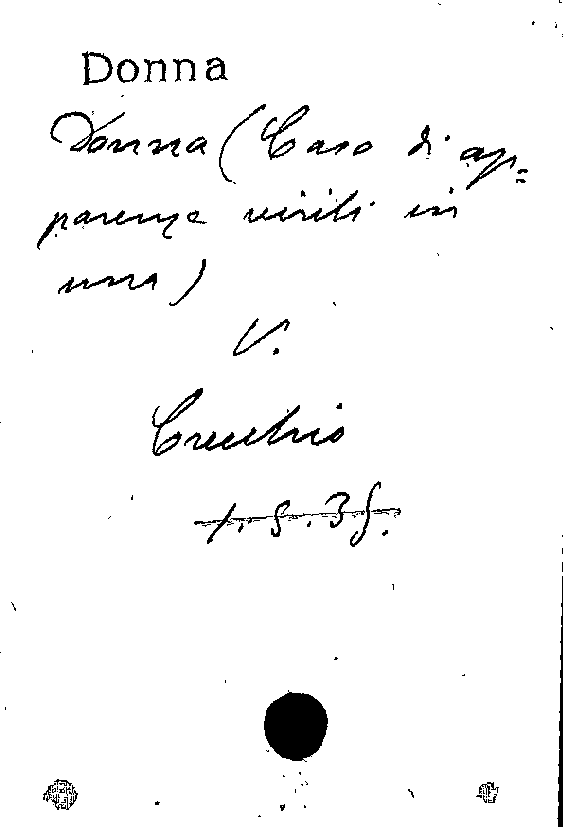 Donna
Donna (Caso di ap=
parenze virili in
una)
V.
Crecchio
1.5.35.